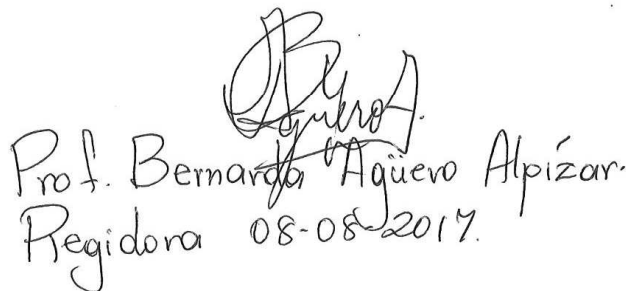 Agüero A.
Prof. Bernarda Agüero Alpízar.
Regidora 08-08-2017.